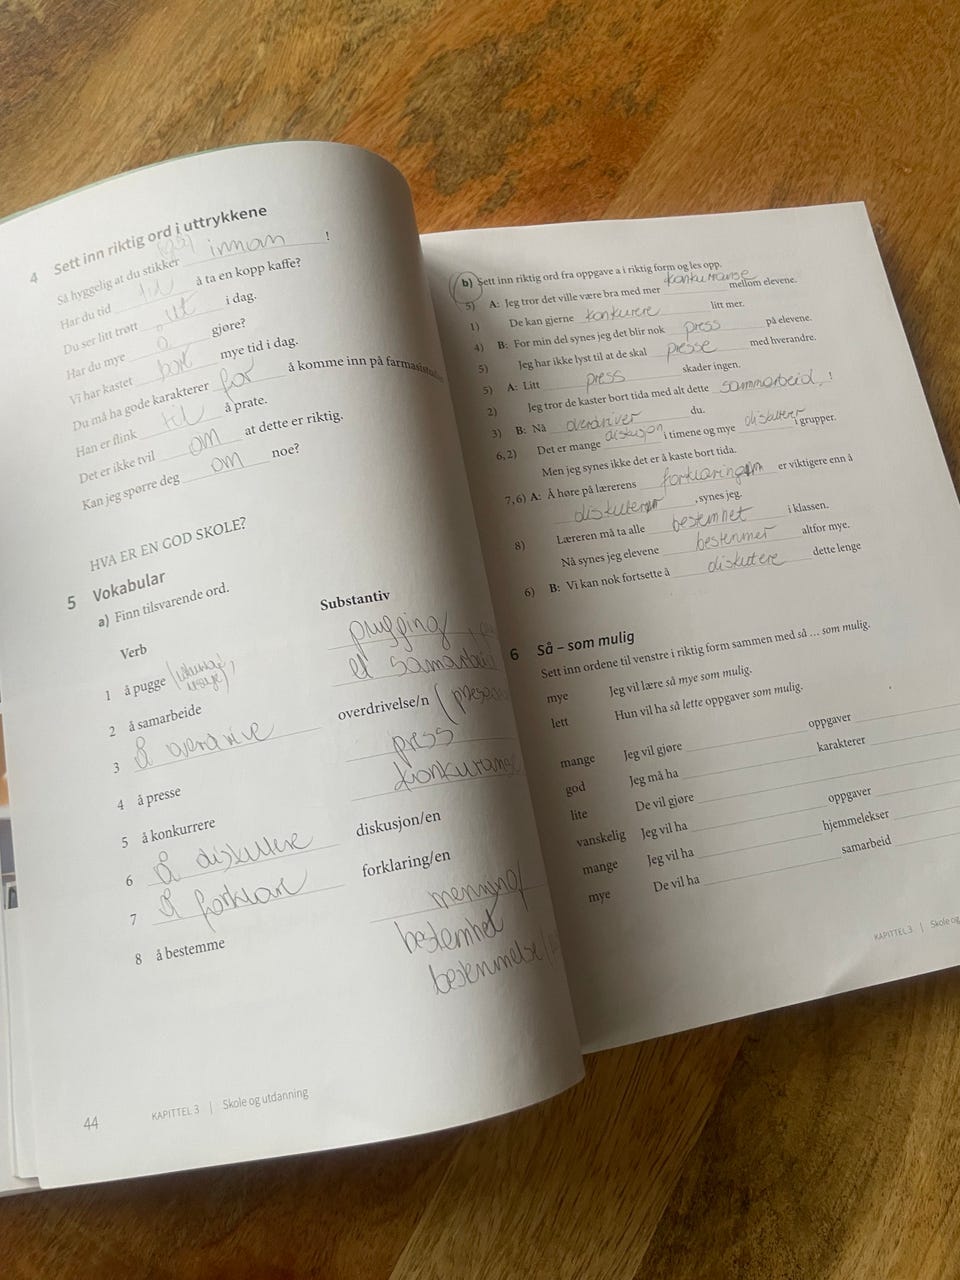 4 Sett inn riktig ord i uttrykkene
Så hyggelig at du stikker innom !
Har du tid til å ta en kopp kaffe?
Du ser litt trøtt ut i dag.
Har du mye å gjøre?
Vi har kastet bort mye tid i dag.
Du må ha gode karakterer for å komme inn på
Han er flink til å prate.
Det er ikke tvil om at dette er riktig.
Kan jeg spørre deg om noe?
HVA ER EN GOD SKOLE?
5 Vokabular
a) Finn tilsvarende ord.
Verb Substantiv
1 å pugge pugging
2 å samarbeide et samarbei
3 å overdrive overdrivelse/n
4 å presse press
5 å konkurrere konkurans
6 å diskutere diskusjon/en
7 å forklare forklaring/en
8 å bestemme menning
bestemhet
bestemmelse
44 KAPITTEL 3 | Skole og utdanning
b) Sett inn riktig ord fra oppgave a i riktig form og les opp.
5) A: Jeg tror det ville være bra med mer konkurranse mellom elevene.
1) De kan gjerne konkurere litt mer.
4) B: For min del synes jeg det blir nok press på elevene.
5) Jeg har ikke lyst til at de skal presse med hverandre.
5) A: Litt press skader ingen.
2) Jeg tror de kaster bort tida med alt dette sammarbeid !
3) B: Nå overdriver du.
6,2) Det er mange diskusjon i timene og mye diskuterer i grupper.
Men jeg synes ikke det er å kaste bort tida.
7,6) A: Å høre på lærerens forklaring er viktigere enn å
, synes jeg.
8) Læreren må ta alle bestemhet i klassen.
Nå synes jeg elevene bestemmer altfor mye.
6) B: Vi kan nok fortsette å diskutere dette lenge
6 Så – som mulig
Sett inn ordene til venstre i riktig form sammen med så ... som mulig.
mye Jeg vil lære så mye som mulig.
lett Hun vil ha så lette oppgaver som mulig.
mange Jeg vil gjøre oppgaver
god Jeg må ha karakterer
lite De vil gjøre
vanskelig Jeg vil ha oppgaver
mange Jeg vil ha hjemmelekser
mye De vil ha samarbeid
KAPITTEL 3 | Skole og